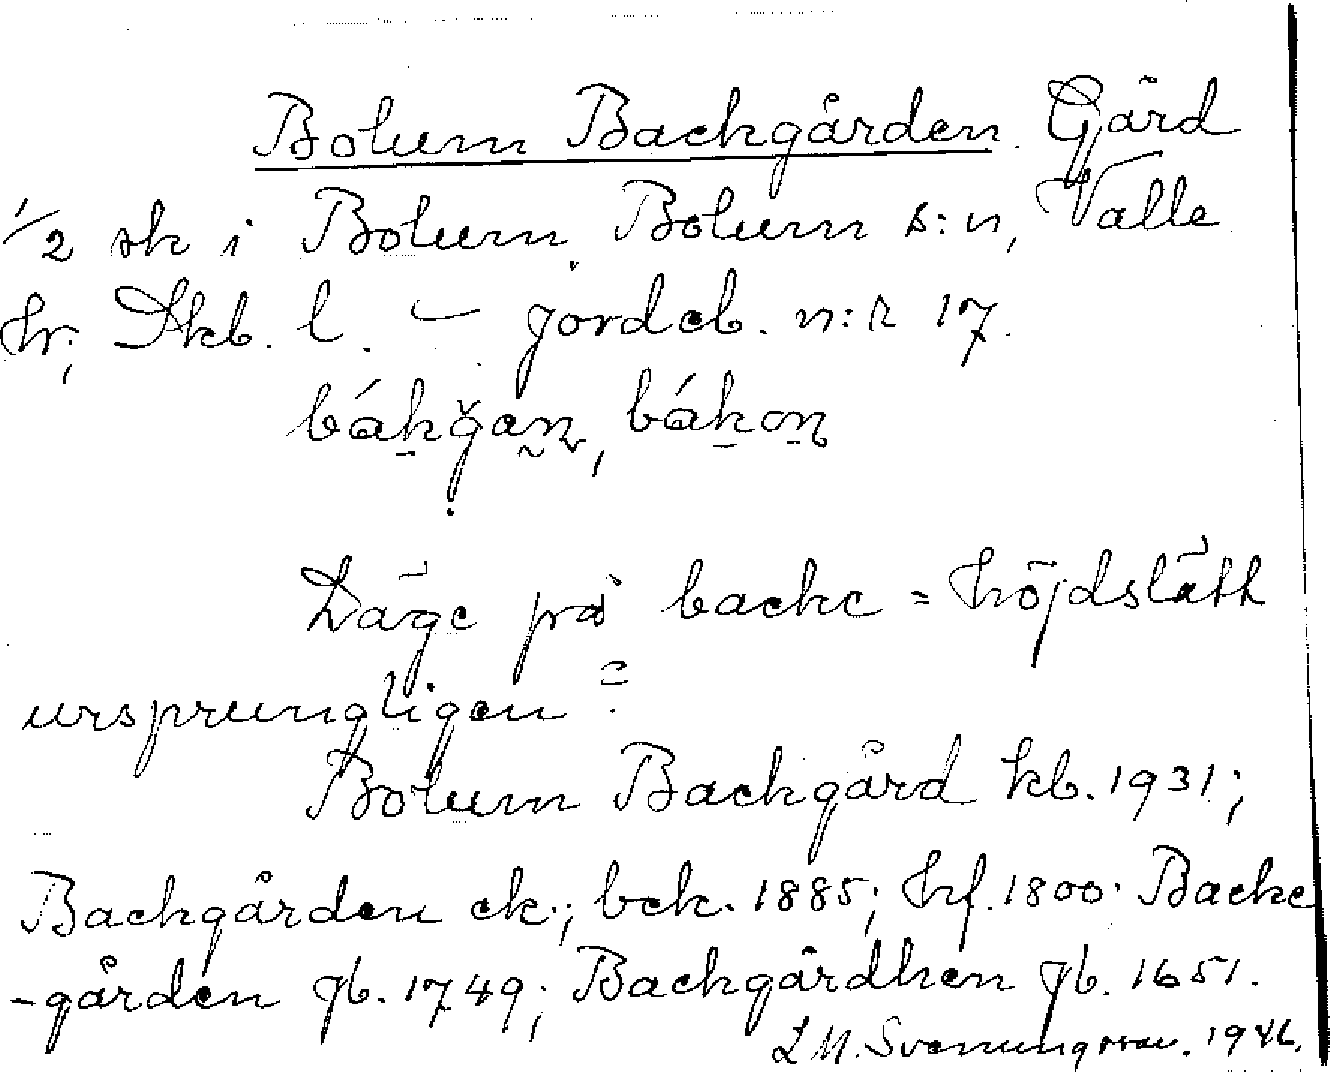 Bolum Backgården. Gård
1/2 sk i Bolum, Bolum s:n, Valle
hr; Skb. l. – jordeb. n:r 17.
båkgan, båkon
Läge på backe = höjdslätt
ursprungligen?
Bolum Backgård kb. 1931;
Backgården ek.; bck. 1885; hf. 1800; Backe
-gården jb. 1749; Backgårdhen jb. 1651.
L M. Svenungsson. 1946.